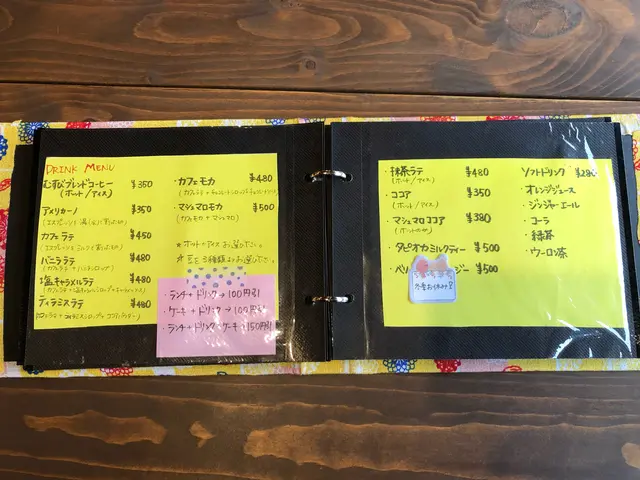 DRINK MENU
むすびブレンドコーヒー ¥350
(ホット/アイス)
アメリカーノ ¥350
カフェラテ ¥450
バニララテ ¥480
塩キャラメルラテ ¥480
ティラミスラテ ¥480
・カフェモカ ¥480
・マシュマロモカ ¥500
(カフェモカ+マシュマロ)
★ホットorアイスお選び下さい。
☆豆を3種類よりお選び下さい。
・ランチ+ドリンク→100円引
・ケーキ+ドリンク→100円引
・ランチ+ドリンク+ケーキ→150円引
・抹茶ラテ ¥480
(ホット/アイス)
・ココア ¥350
(ホット/アイス)
・マシュマロココア ¥380
(ホットのみ)
・タピオカミルクティー ¥500
・ベリ ジー ¥500
・ソフトドリンク ¥280
・オレンジジュース
・ジンジャーエール
・コーラ
・緑茶
・ウーロン茶